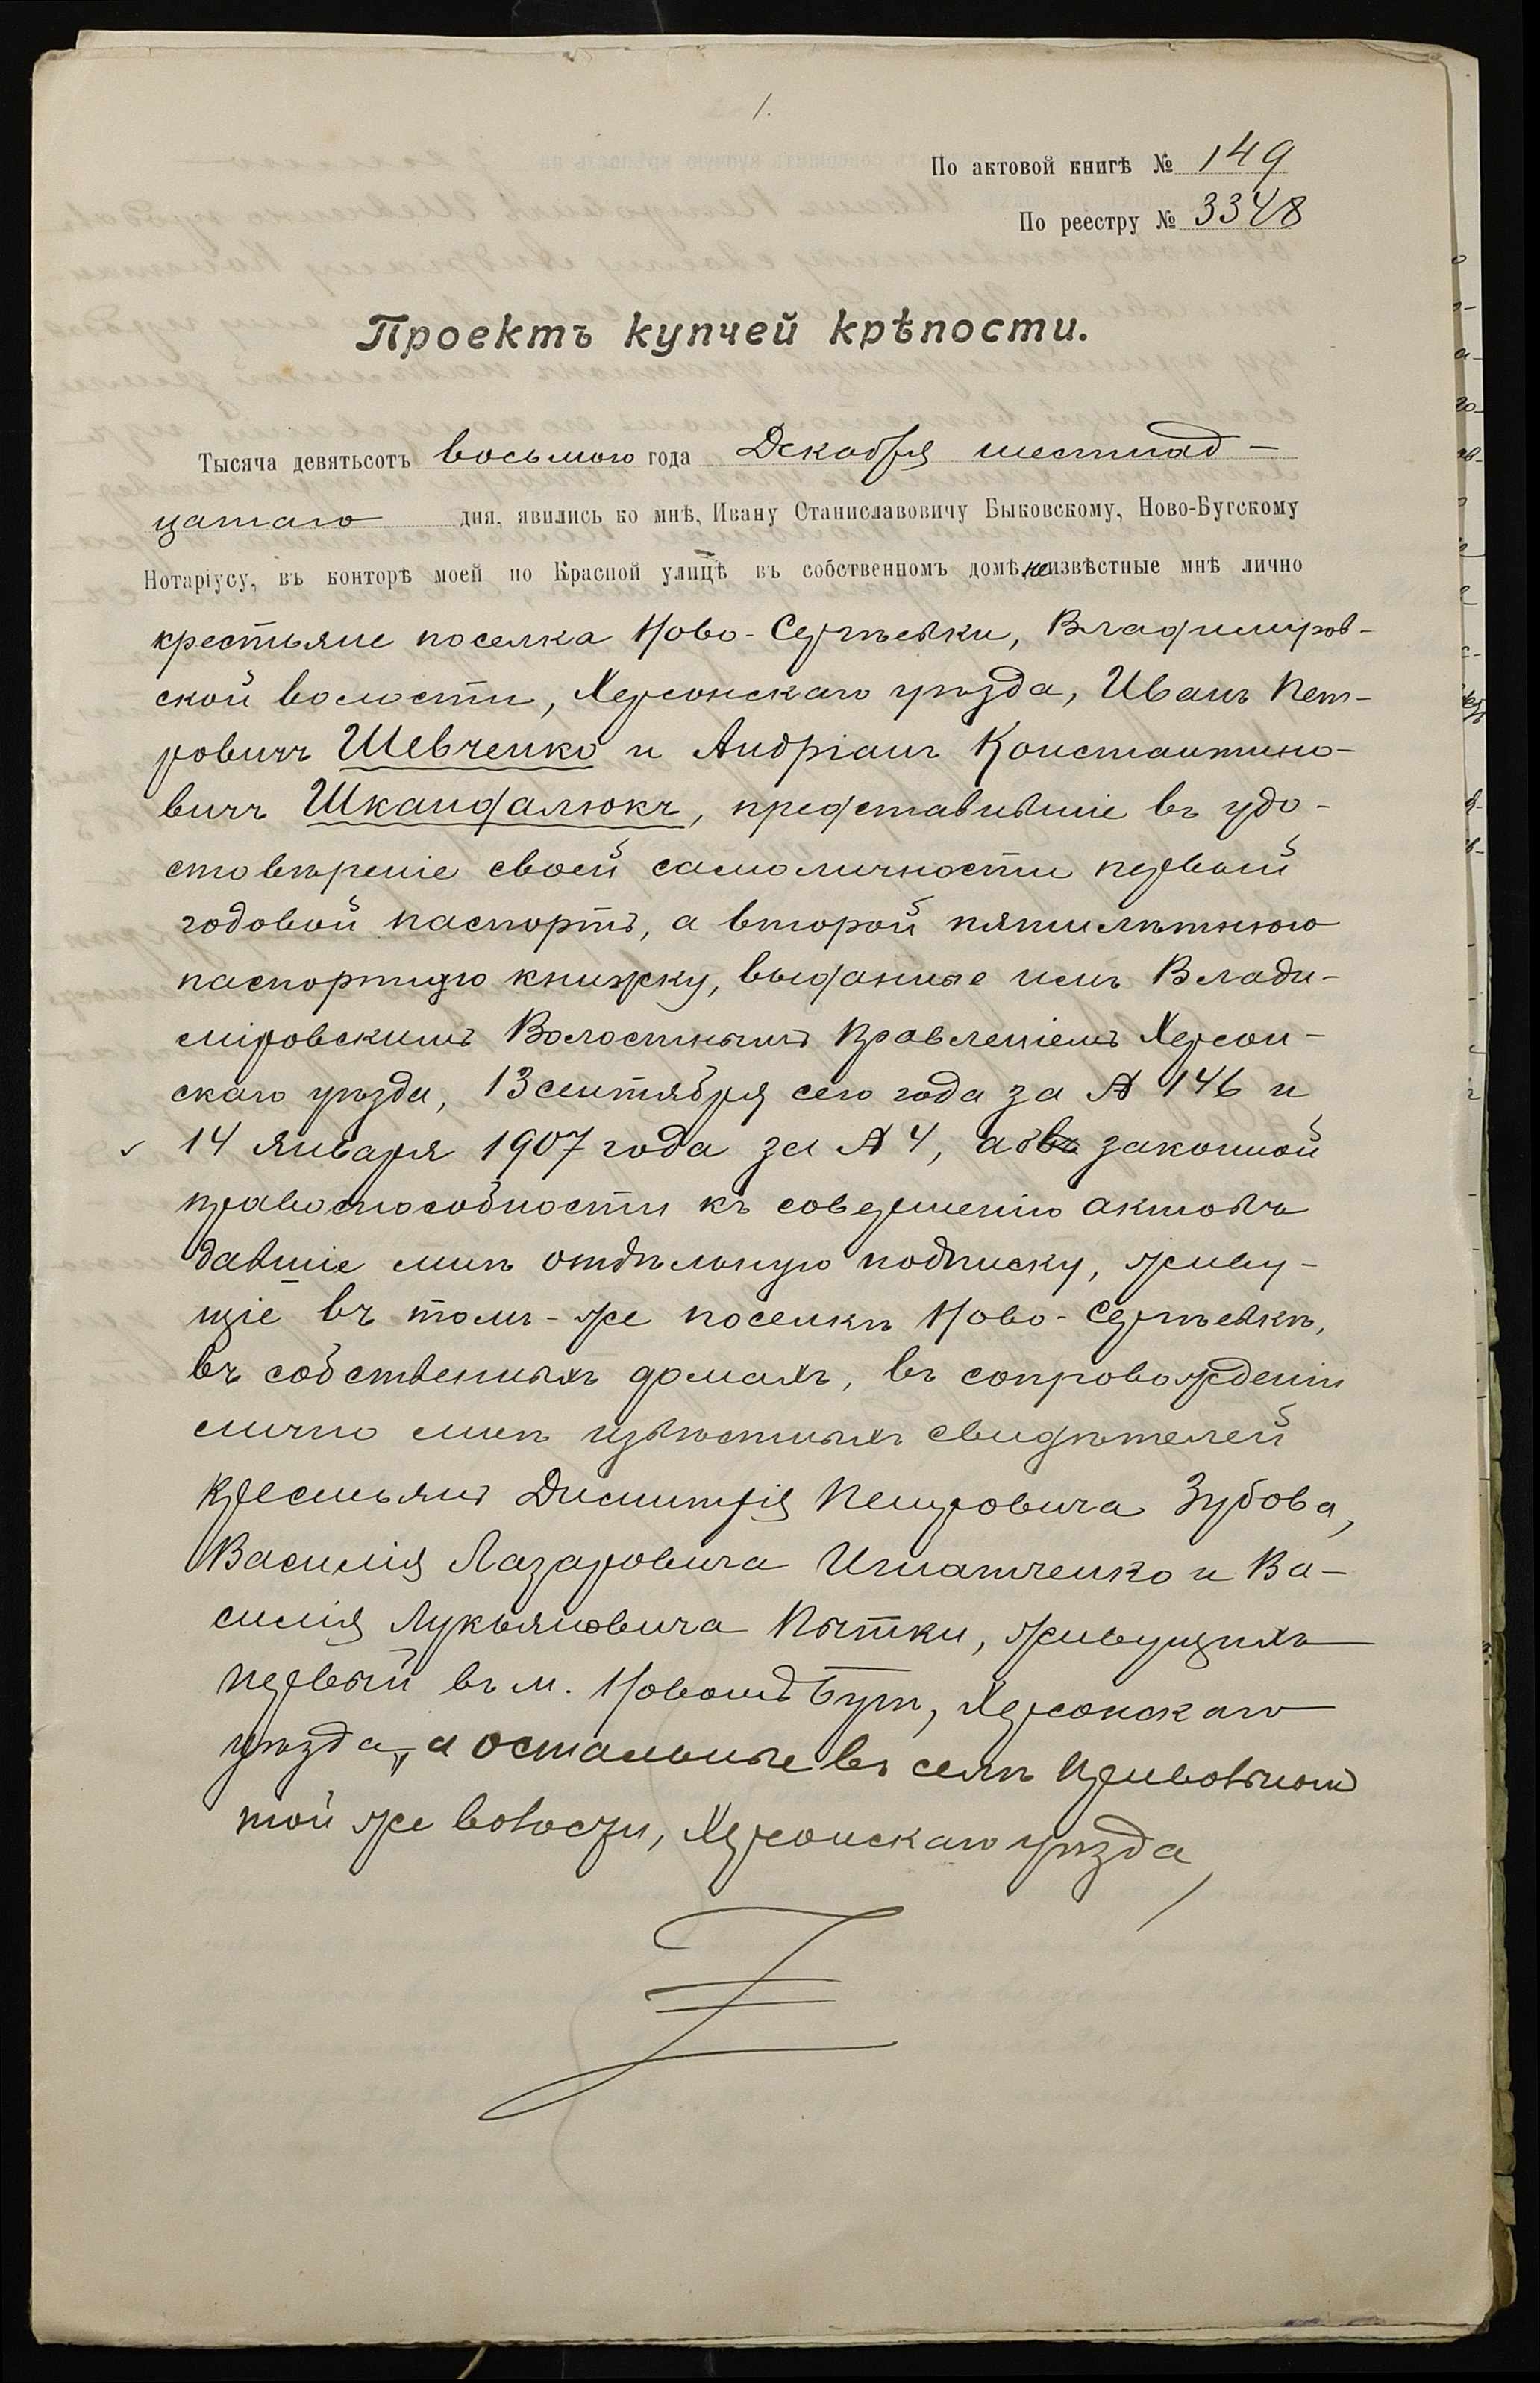 1.
По актовой книгѣ № 149
По реестру № 3348
Проектъ купчей крѣпости.
Тысяча девятьсотъ восьмого года Декабря шестнад-
цатаго дня, явились ко мнѣ, Ивану Станиславовичу Быковскому, Ново-Бугскому
Нотаріусу, въ конторѣ моей по Красной улицѣ въ собственномъ домѣ, неизвѣстные мнѣ лично
крестьяне поселка Ново-Сергѣевки, Владимiров-
ской волости, Херсонскаго уѣзда, Иванъ Пет-
ровичъ Шевченко и Андріанъ Константино-
вичъ Шкандалюкъ, представившіе въ удо-
стовѣреніе своей самоличности первый
годовой паспортъ, а второй пятилѣтнюю
паспортную книжку, выданные имъ Влади-
міровскимъ Волостнымъ Правленіемъ Херсон-
скаго уѣзда, 13 сентября сего года за № 146 и
14 Января 1907 года за № 4, а въ законной
правоспособности къ совершенію актовъ
давшіе мнѣ отдѣльную подписку, живу-
щіе въ томъ-же поселкѣ Ново-Сергѣевкѣ,
въ собственныхъ домахъ, въ сопровожденіи
лично мнѣ извѣстныхъ свидѣтелей
крестьянъ Димитрія Петровича Зубова,
Василія Лазаровича Игнатченко и Ва-
силія Лукьяновича Пытки, живущихъ
первый въ м. Новомъ Бугѣ, Херсонскаго
уѣзда, а остальные въ селѣ Привольномъ
той же волости, Херсонскаго уѣзда